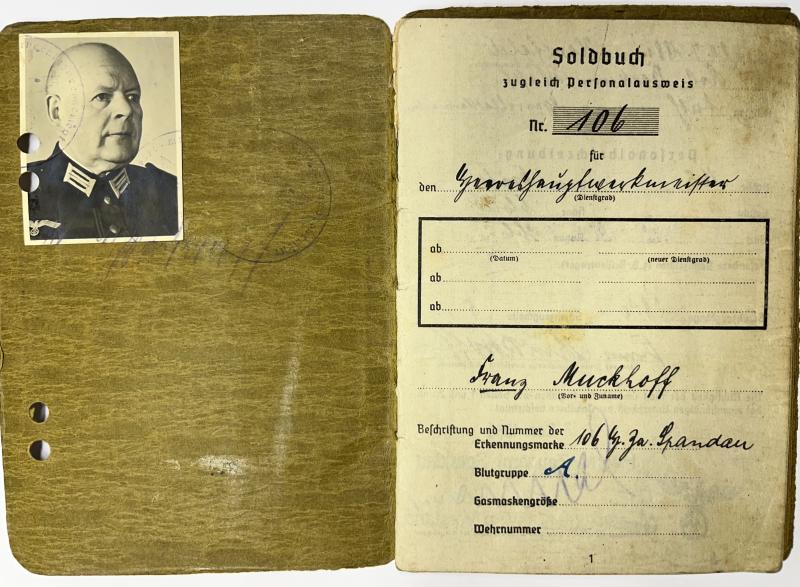 Soldbuch
zugleich Personalausweis
Nr. 106
für
den Heereshauptwerkmeister
(Dienstgrad)
ab
(Datum) (neuer Dienstgrad)
ab
ab
Franz Muckhoff
(Vor- und Zuname)
Beschriftung und Nummer der
Erkennungsmarke 106 H. Za. Spandau
Blutgruppe A.
Gasmaskengröße
Wehrnummer
1